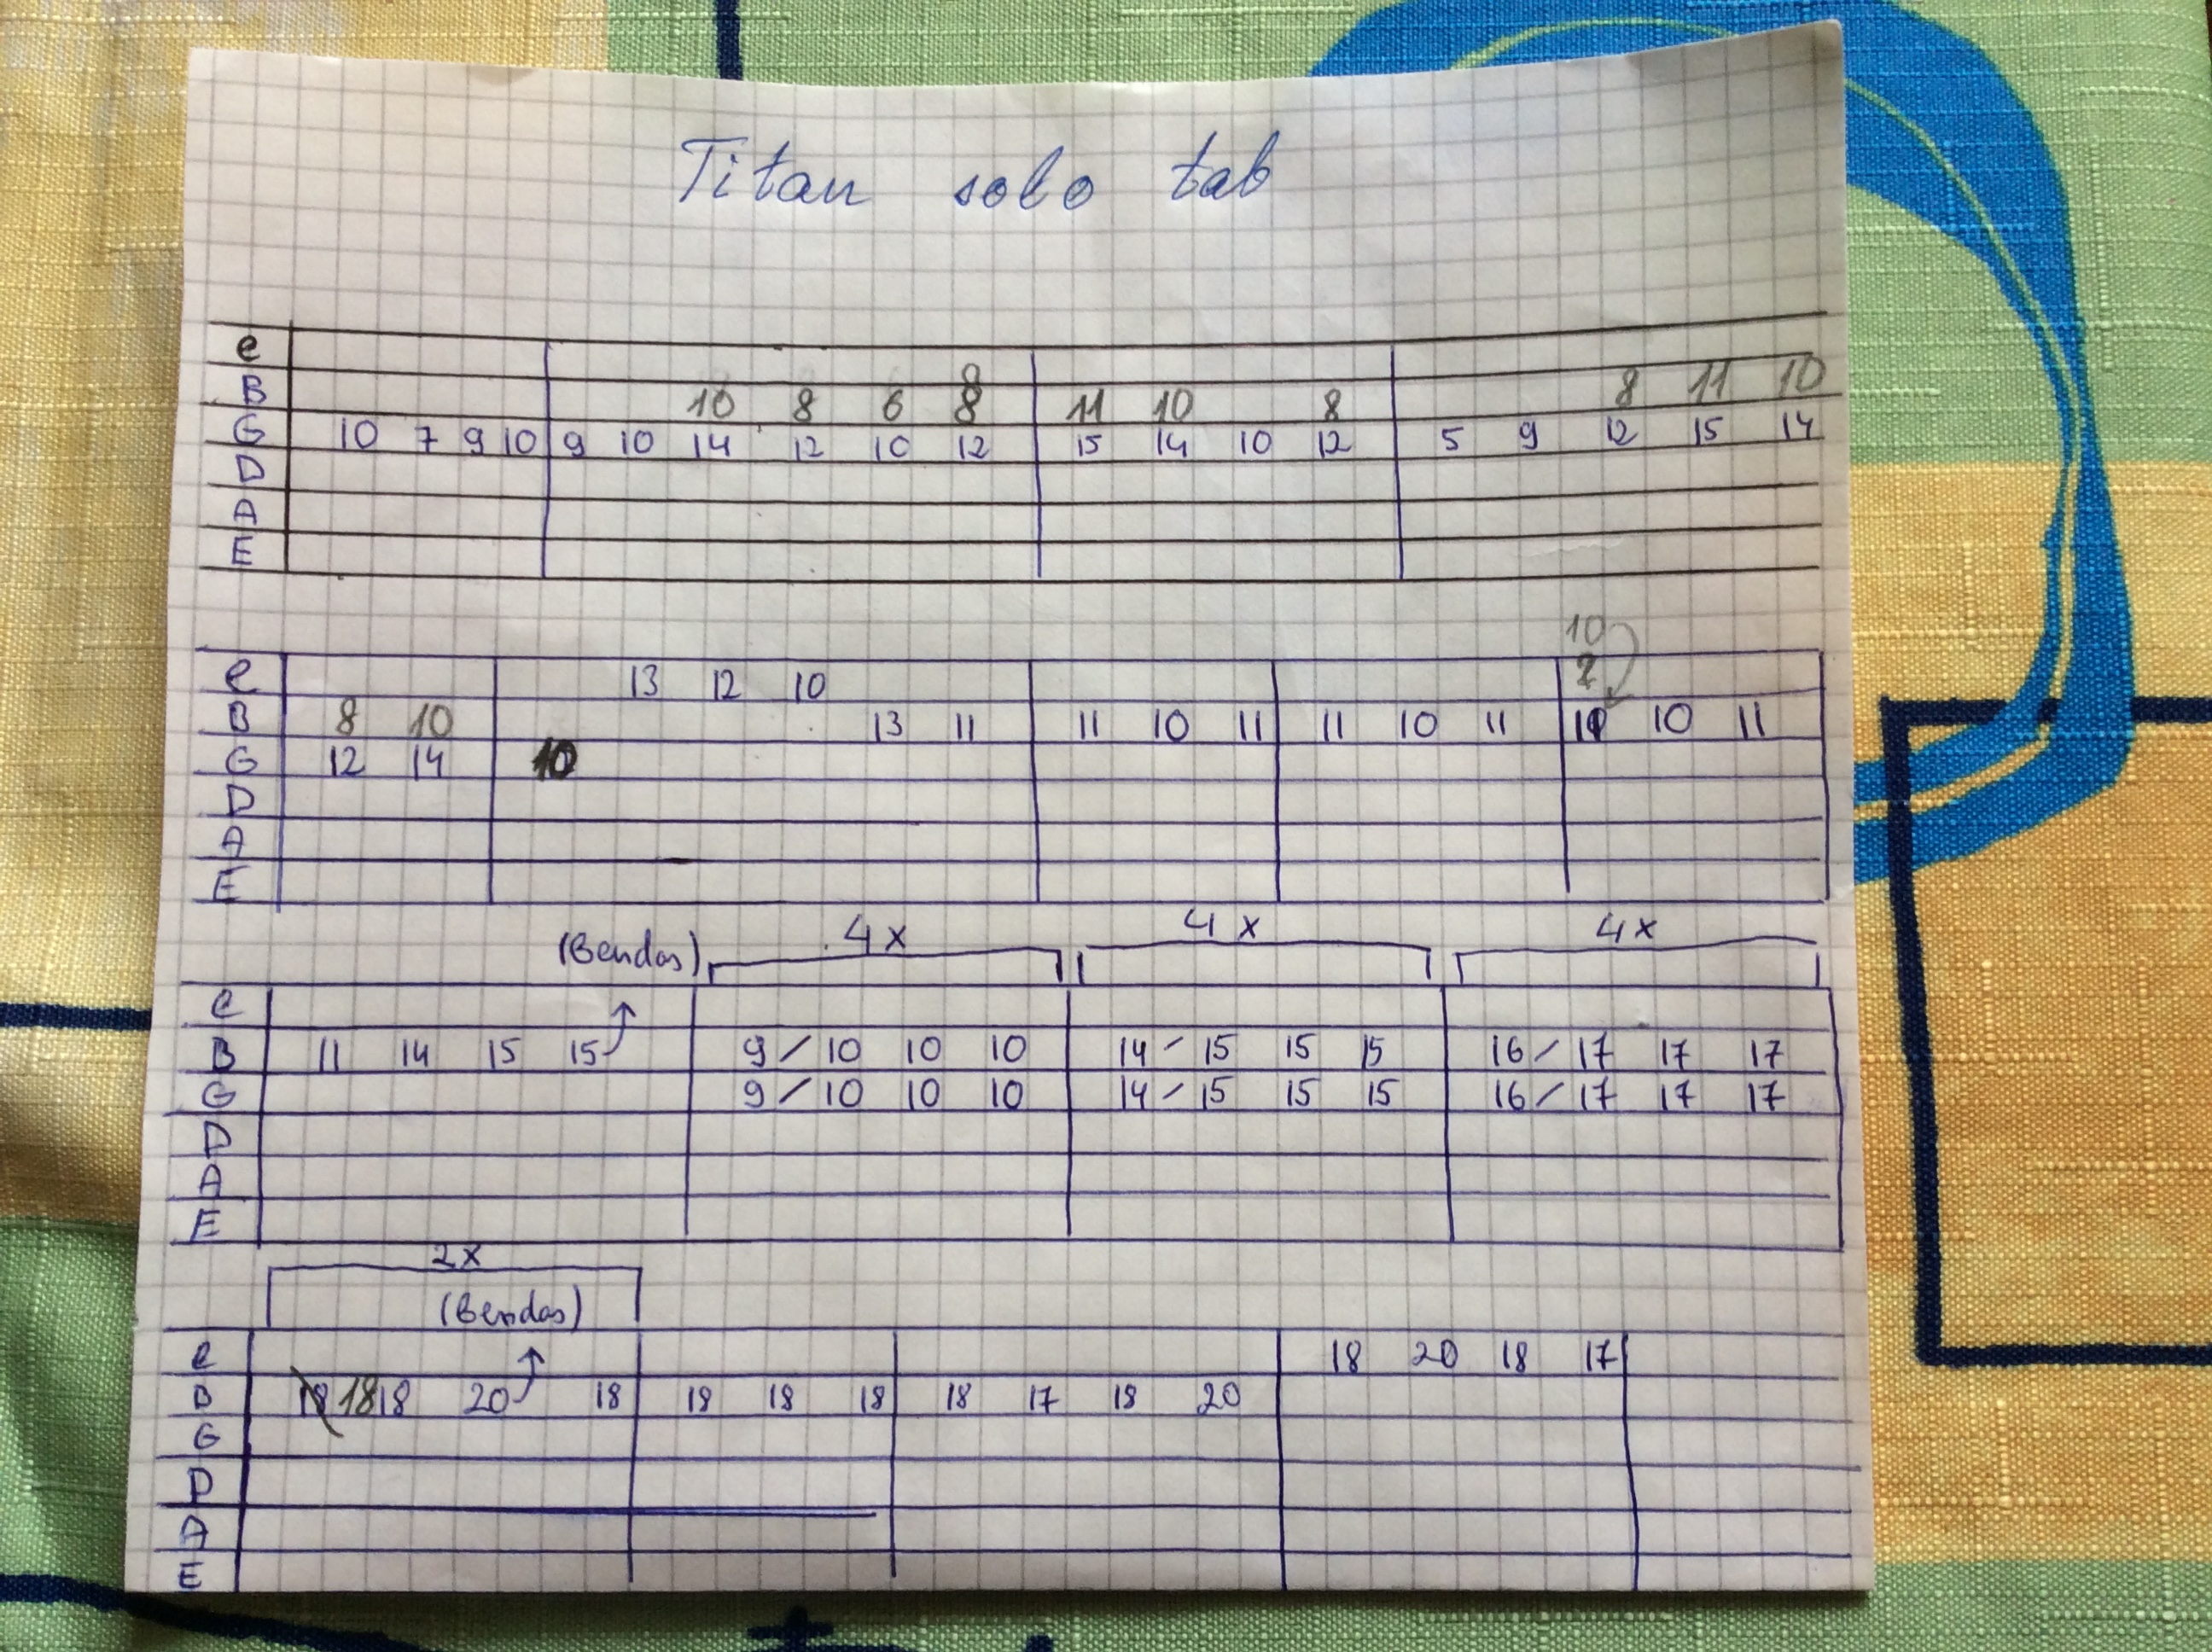 Titan solo tab
e
B 10 8 6 8 8 11 10 8 8 11 10
G 10 7 9 10 9 10 14 12 10 12 15 14 10 12 5 9 12 15 14
D
A
E
10
e 13 12 10 ?
B 8 10 13 11 11 10 11 11 10 11 10 10 11
G 12 14 10
D
A
E
(Bendas) 4x 4x 4x
e
B 11 14 15 15 9/10 10 10 14/15 15 15 16/17 17 17
G 9/10 10 10 14/15 15 15 16/17 17 17
D
A
E
2x
(Bendas)
e 18 20 18 17
B 18 18 18 20 18 18 18 18 18 17 18 20
G
D
A
E